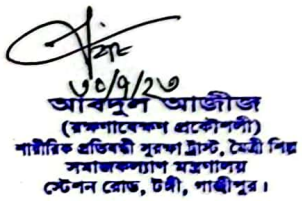 ৩০/৭/২৩
আবদুল আজীজ
(রক্ষণাবেক্ষণ প্রকৌশলী)
শারীরিক প্রতিবন্ধী সুরক্ষা ট্রাস্ট, মৈত্রী শিল্প
সমাজকল্যাণ মন্ত্রণালয়
স্টেশন রোড, টঙ্গী, গাজীপুর।